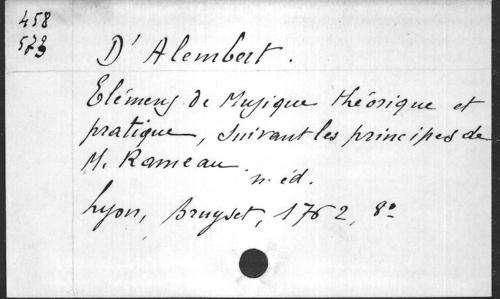 458
573
D' Alembert.
Elémens de Musique théorique et
pratique, suivant les principes de
M. Rameau
n. éd.
Lyon, Bruyset, 1762, 8°